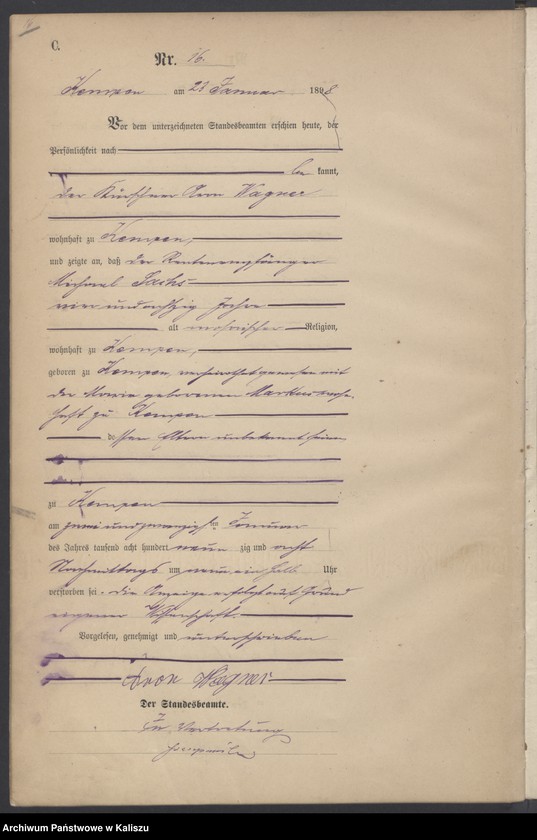 C.
Nr. 16.
Kempen am 23 Januar 1898
Vor dem unterzeichneten Standesbeamten erschien heute, der
Persönlichkeit nach
be kannt,
der Kürschner Aron Wagner
wohnhaft zu Kempen,
und zeigte an, daß der Rentenempfänger
Michael Sachs
vier und achtzig Jahre
alt mosaischer Religion,
wohnhaft zu Kempen,
geboren zu Kempen, verheirathet gewesen mit
der Marie geborenen Markus wohn-
haft zu Kempen
dessen Eltern unbekannt seien
zu Kempen
am zwei und zwanzigsten Januar
des Jahres tausend acht hundert neun zig und acht
Nachmittags um neun ein halb Uhr
verstorben sei. Die Anzeige erfolgt auf Grund
eigener Wissenschaft.
Vorgelesen, genehmigt und unterschrieben
Aron Wagner
Der Standesbeamte.
In Vertretung
Archiwum Państwowe w Kaliszu